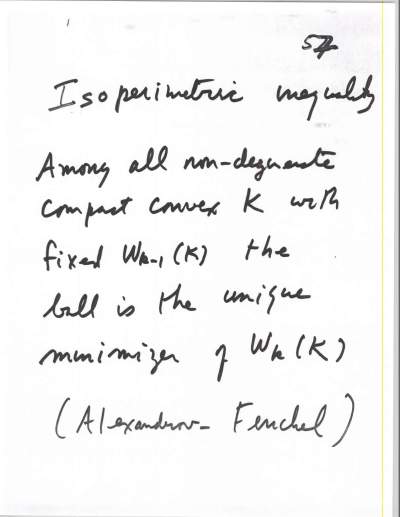 Isoperimetric inequality
Among all non-degenerate
compact convex K with
fixed Wk-1 (K) the
ball is the unique
minimizer of Wk (K)
(Alexandrov- Fenchel)